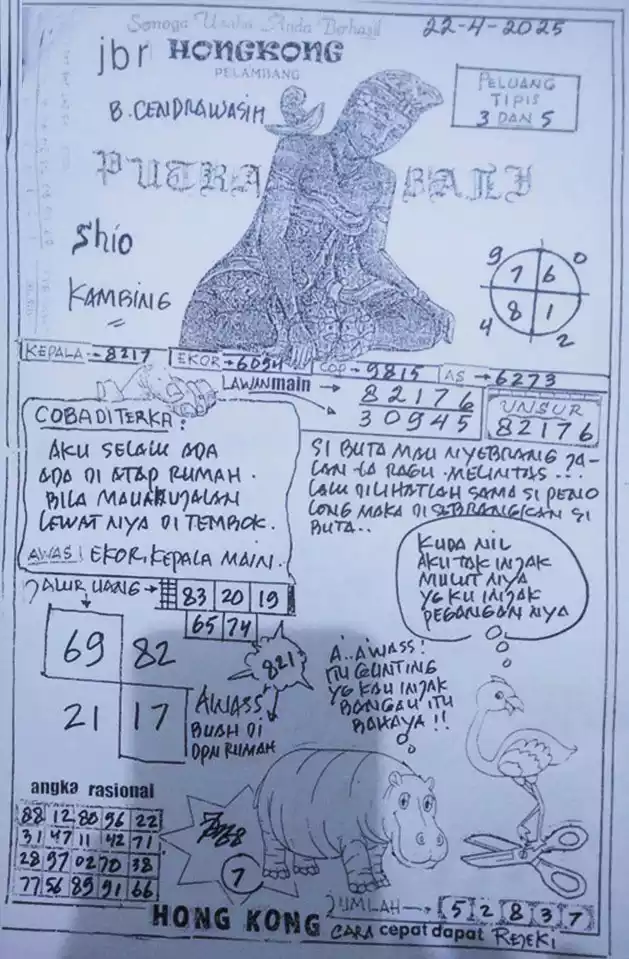 Semoga Usaha Anda Berhasil
22-4-2025
jbr HONGKONG
PELAMBANG
B. CENDRAWASIH
PELUANG
TIPIS
3 DAN 5
PUTRA BALI
Shio
KAMBING
9 0
7 6
8 1
4 2
KEPALA - 8217
EKOR → 6094
COP → 9815
AS → 6273
LAWAN main → 82176
30945
UNSUR
82176
COBA DITERKA :
AKU SELALU ADA
ADA DI ATAP RUMAH.
BILA MAU
LEWAT NYA DI TEMBOK.
AWAS! EKOR, KEPALA MAIN.
SI BUTA MAU NYEBRANG JA-
LAN IA RAGU MELINTAS...
LALU DILIHATLAH SAMA SI PENO
LONG MAKA DI SEBRANGKAN SI
BUTA..
KUDA NIL
AKU TAK INJAK
MULUT NYA
YG KU INJAK
PEGANGAN NYA
JALUR UANG → 83 20 19
65 74
69 82
21 17
821
AWASS
BUAH DI
DPN RUMAH
A..AWASS!
ITU GUNTING
YG KAU INJAK
BANGAU ITU
BAHAYA!!
angka rasional
88 12 80 96 22
31 47 11 42 71
28 97 02 70 38
77 56 89 91 66
7
JUMLAH → 5 2 8 3 7
HONG KONG CARA cepat dapat REJEKI